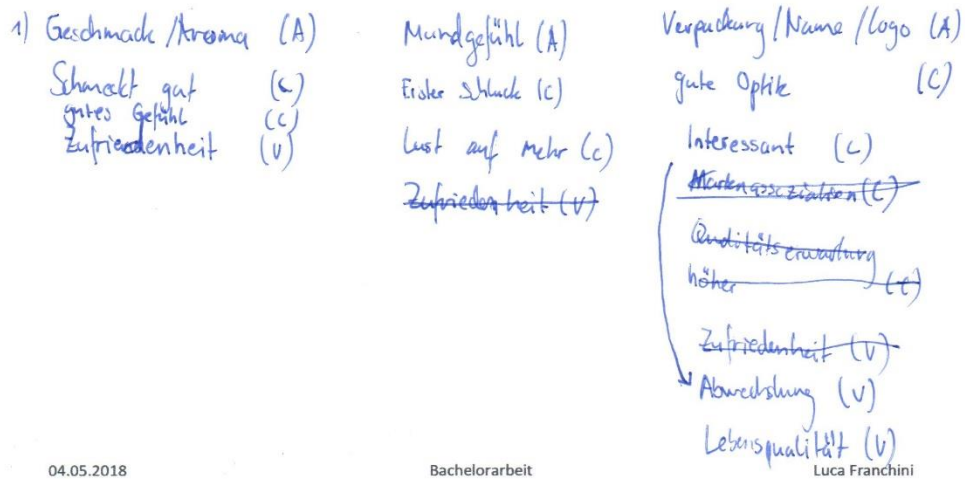 1) Geschmack/Aroma (A)
Schmeckt gut (C)
gutes Gefühl (C)
Zufriedenheit (V)
Mundgefühl (A)
Erster Schluck (C)
Lust auf mehr (C)
Zufriedenheit (V)
Verpackung/Name/Logo (A)
gute Optik (C)
Interessant (C)
Markenassoziation (C)
Qualitätserwartung
höher (C)
Zufriedenheit (V)
Abwechslung (V)
Lebensqualität (V)
04.05.2018
Bachelorarbeit
Luca Franchini